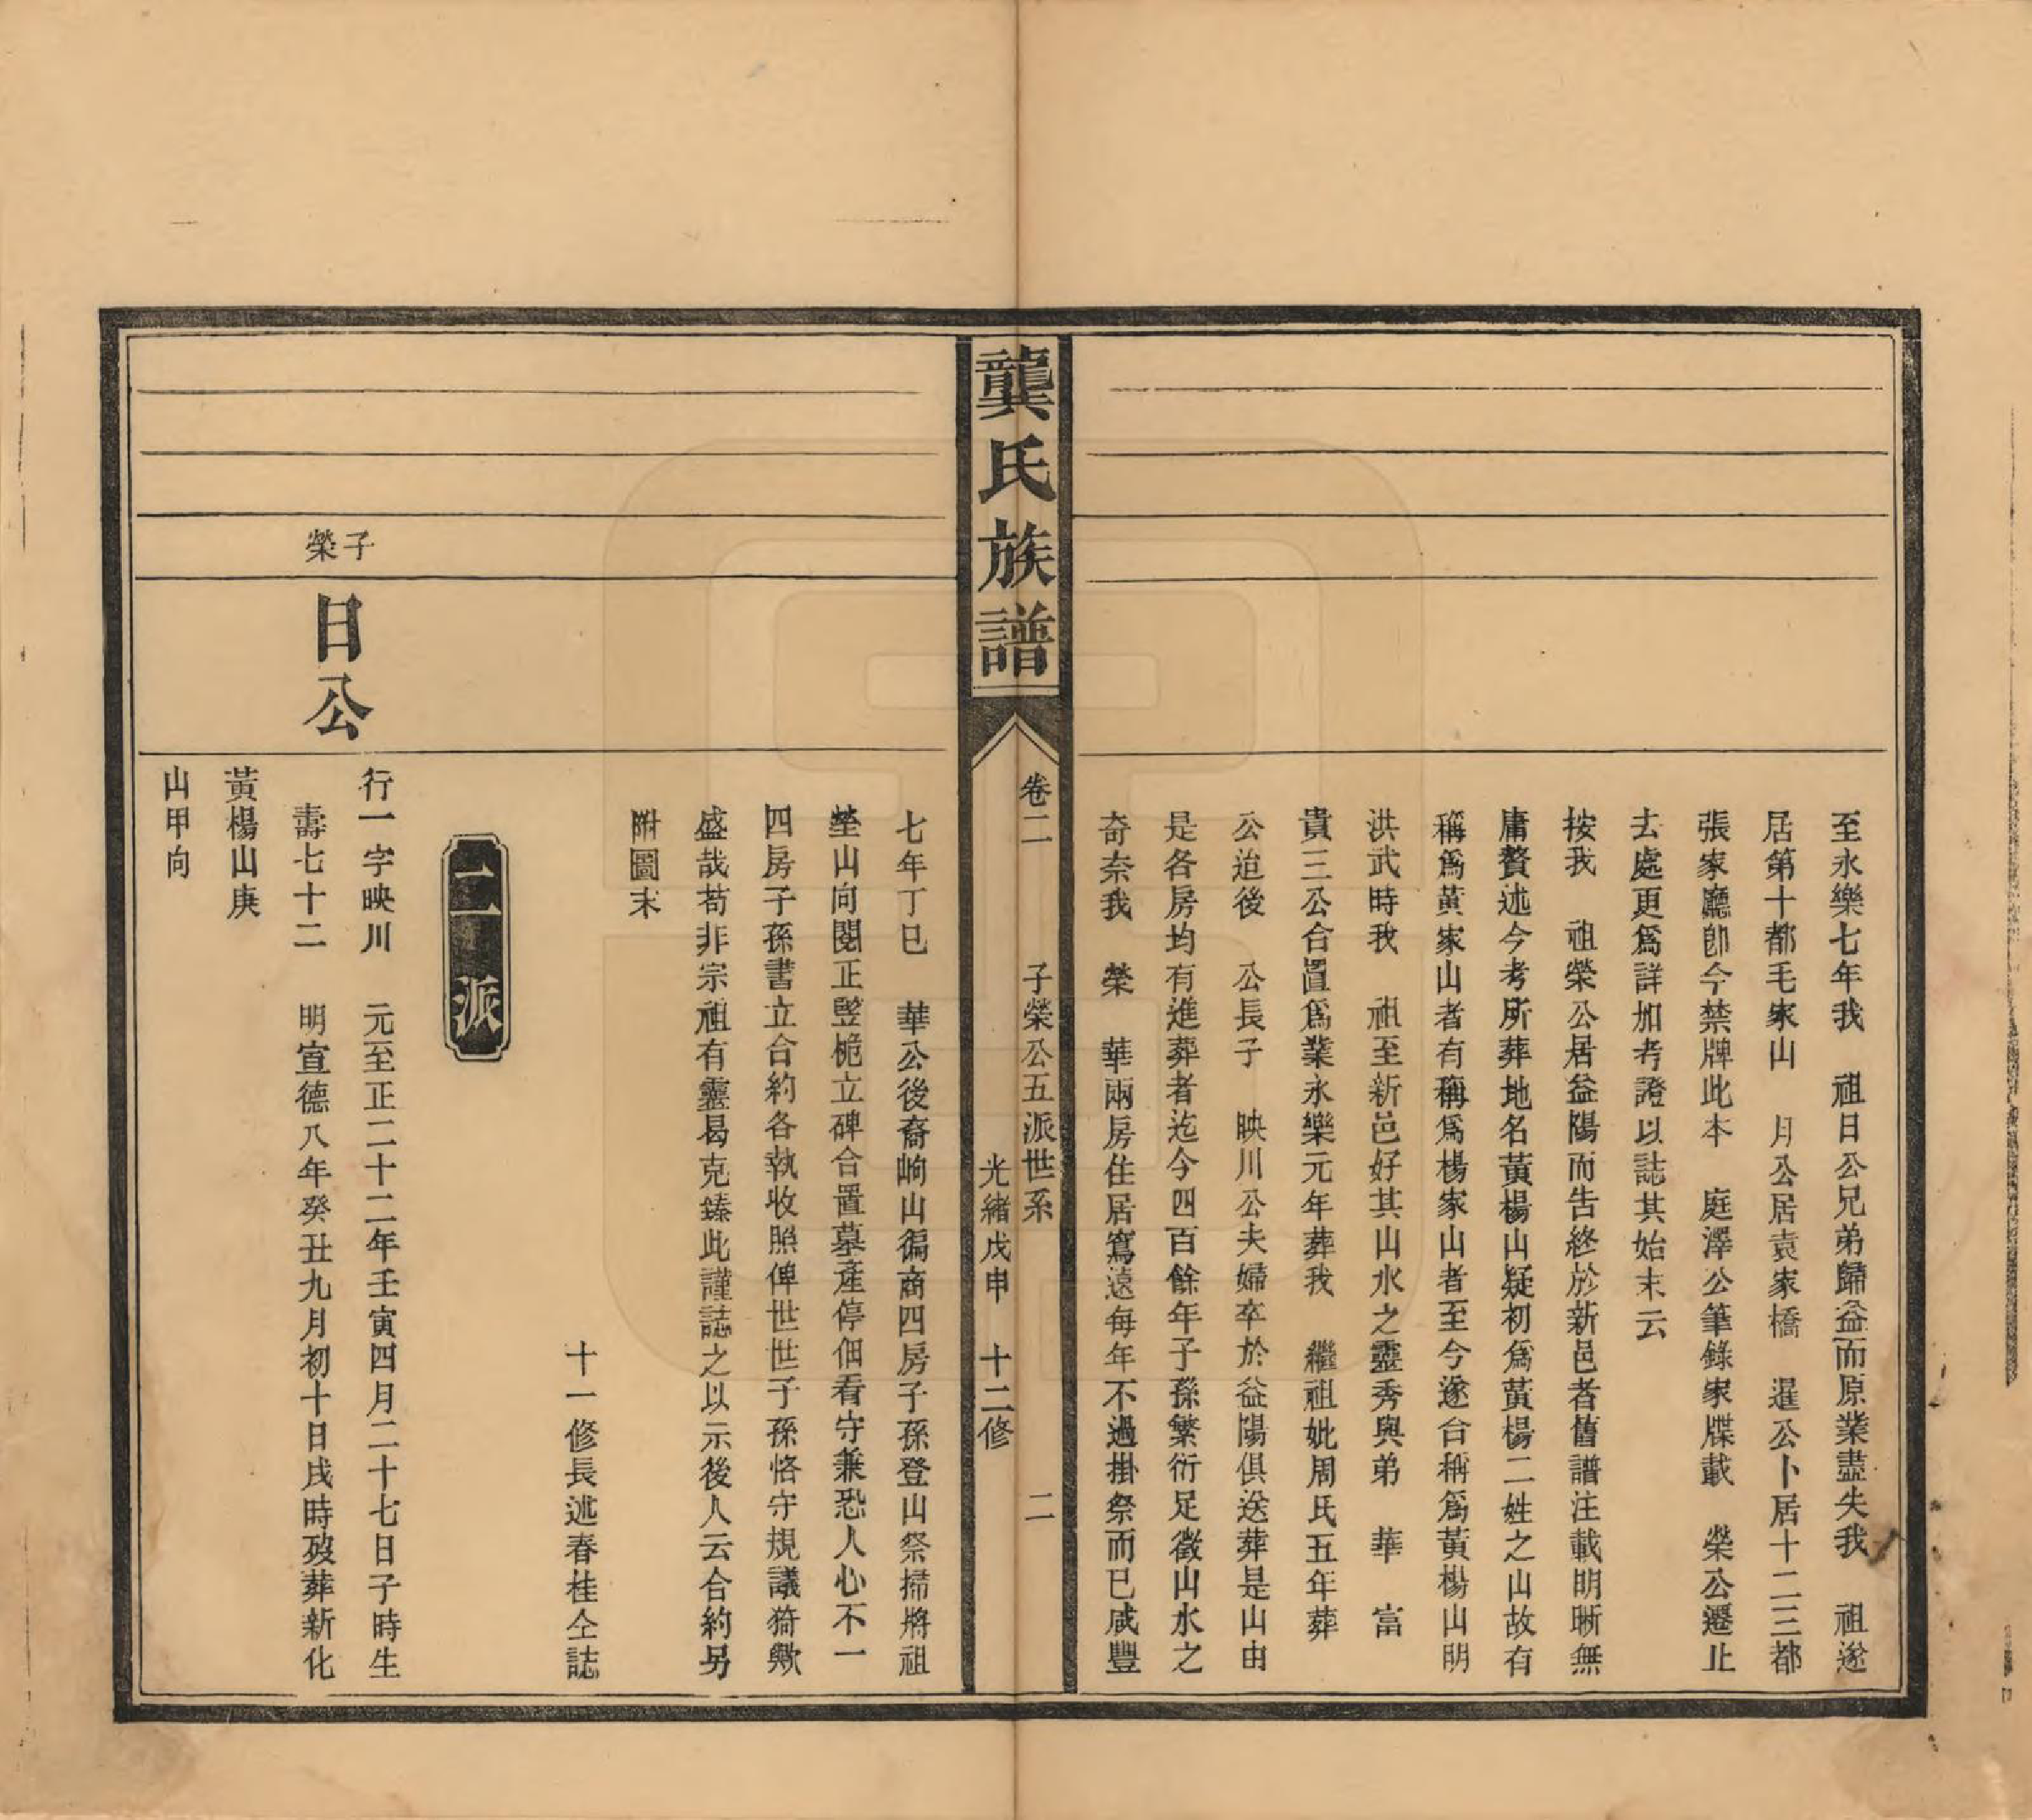 至永樂七年我　祖日公兄弟歸益而原業盡失我　祖遂
居第十都毛家山　月公居袁家橋　暹公卜居十二三都
張家廳卽今禁牌此本　庭澤公筆錄家牒載　榮公遷止
去處更爲詳加考證以誌其始末云
按我　祖榮公居益陽而吿終於新邑者舊譜注載明晰無
庸贅述今考所葬地名黃楊山疑初爲黃楊二姓之山故有
稱爲黃家山者有稱爲楊家山者至今遂合稱爲黃楊山明
洪武時我　祖至新邑好其山水之靈秀與弟　華　富
貴三公合置爲業永樂元年葬我　繼祖妣周氏五年葬
公迨後　公長子　映川公夫婦卒於益陽俱送葬是山由
是各房均有進葬者迄今四百餘年子孫繁衍足徵山水之
奇奈我　榮　華兩房住居窵遠每年不過掛祭而已咸豐
龔氏族譜
卷二　子榮公五派世系　二
光緒戊申　十二修
七年丁巳　華公後裔峋山徧商四房子孫登山祭掃將祖
塋山向閱正豎桅立碑合置墓產停佃看守兼恐人心不一
四房子孫書立合約各執收照俾世世子孫恪守規議猗歟
盛哉苟非宗祖有靈曷克臻此謹誌之以示後人云合約另
附圖末
十一修長述春桂仝誌
二派
子榮
日公
行一字映川　元至正二十二年壬寅四月二十七日子時生
壽七十二　明宣德八年癸丑九月初十日戌時歿葬新化
黃楊山庚
山甲向